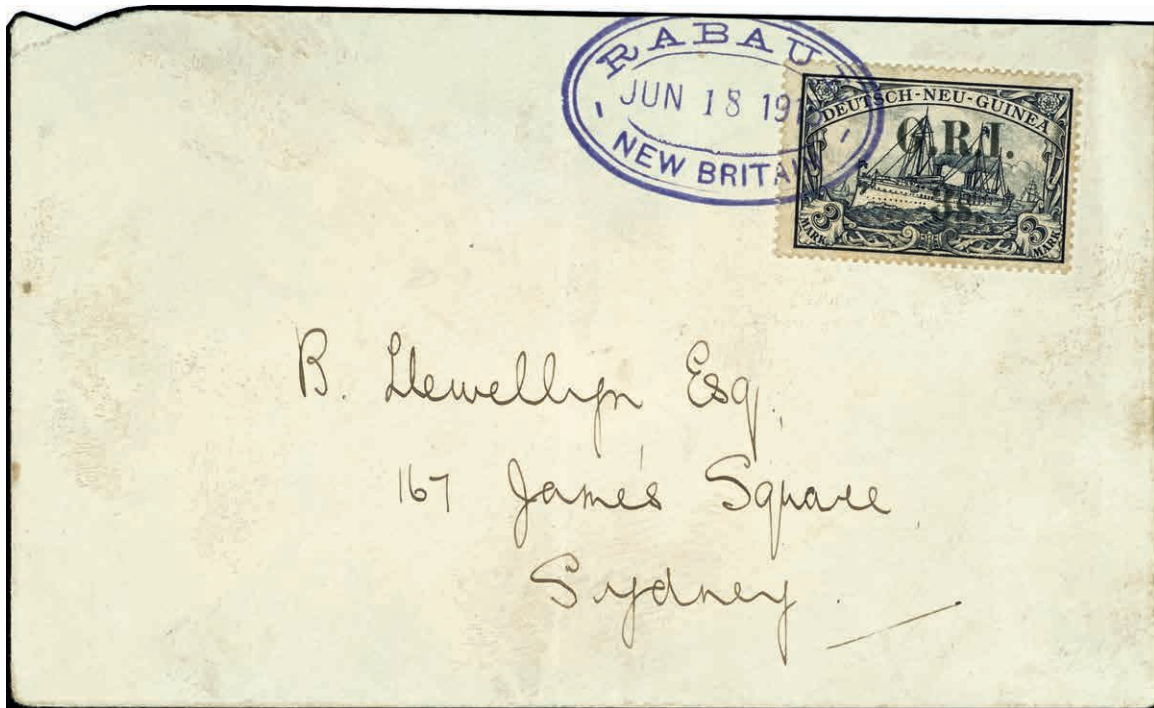 RABAUL
JUN 18 191
NEW BRITAIN
DEUTSCH-NEU-GUINEA
G.R.I.
3s.
3 MARK DREI 3 MARK
B. Llewellyn Esq.
167 James Square
Sydney